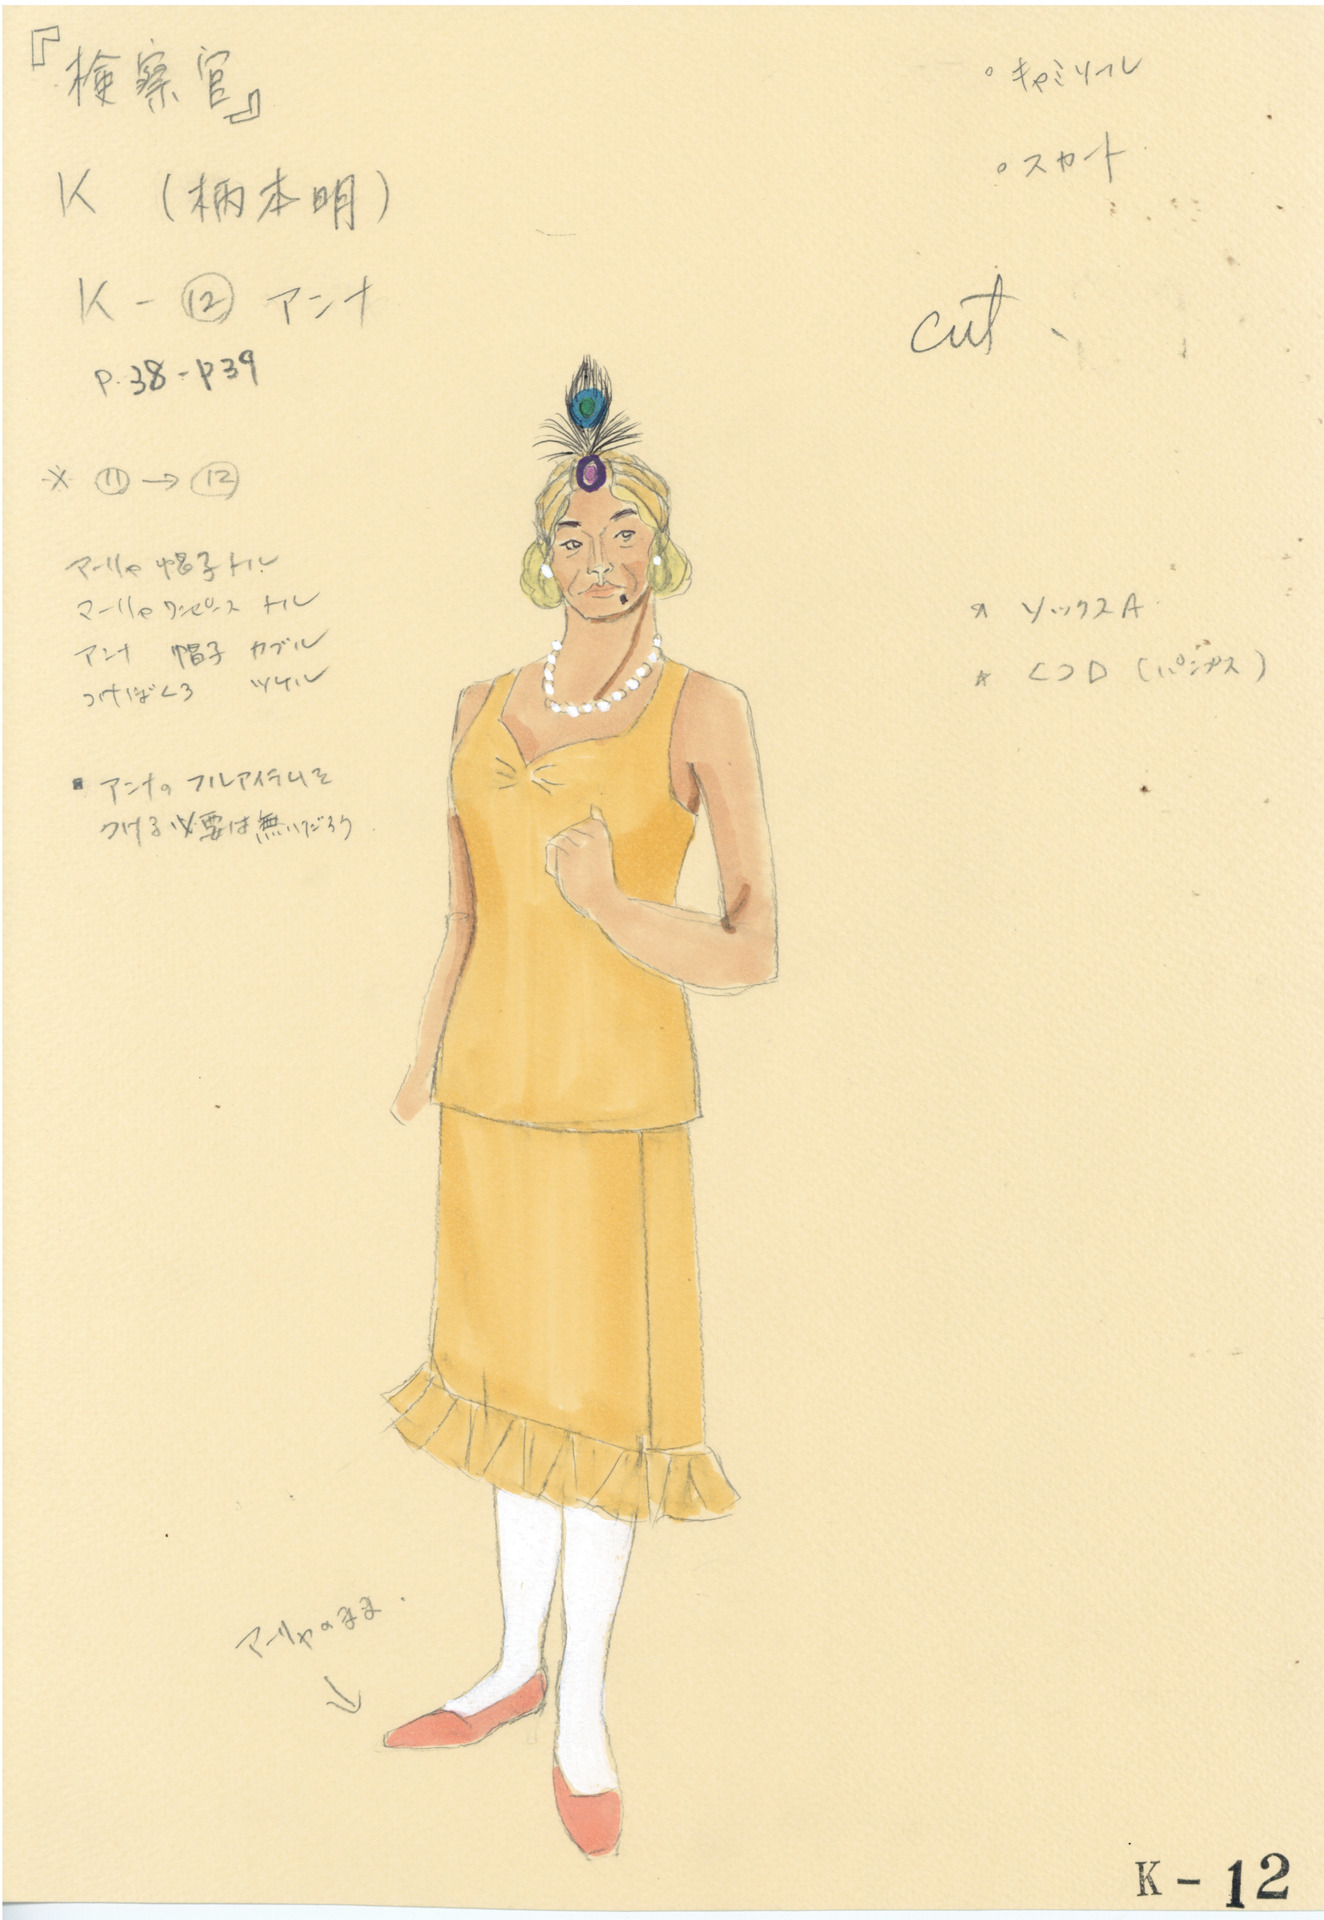 『検察官』
K (柄本明)
K - ⑫ アンナ
P.38-P39
※ ⑪→⑫
マーリャ 帽子 トル
マーリャ ワンピース トル
アンナ 帽子 カブル
つけぼくろ ツケル
▪ アンナの フルアイテムを
つける必要は無いだろう
。キャミソール
。スカート
cut
★ ソックスA
★ くつD (パンプス)
マーリャのまま.
K-12